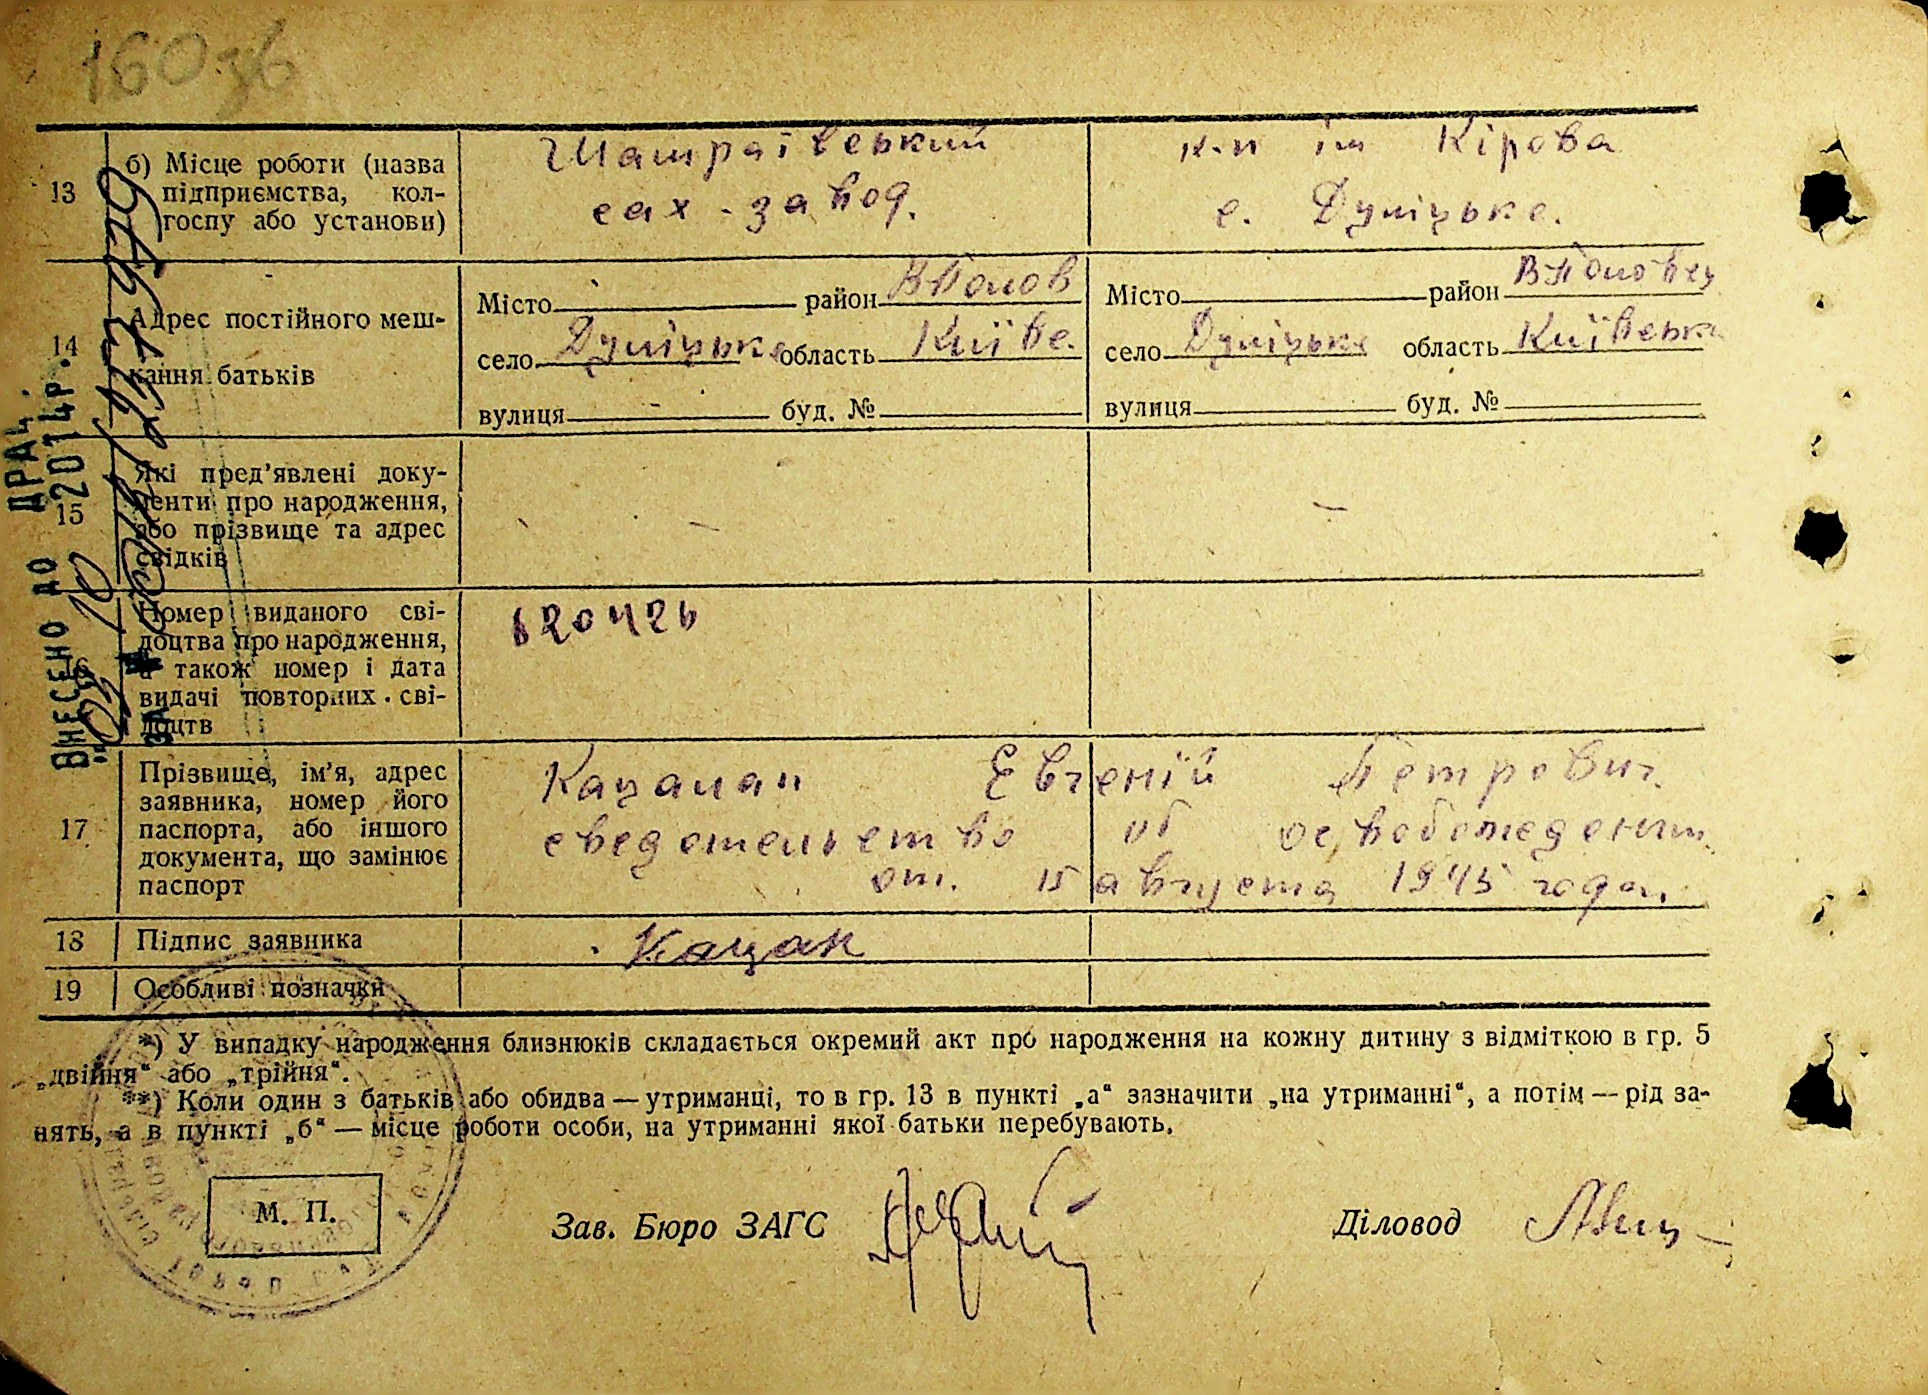 13
б) Місце роботи (назва
підприємства, кол-
госпу або установи)
Шатраївський
сах-завод.
к-п ім Кірова
с. Дуліцьке.
14
Адрес постійного меш-
кання батьків
Місто район ВПолов
село Дуліцьке область Київс.
вулиця - буд. №
Місто район ВПоловец
село Дуліцьке область Київськ
вулиця буд. №
15
Які пред'явлені доку-
менти про народження,
або прізвище та адрес
свідків
-
-
16
Номер виданого сві-
доцтва про народження,
а також номер і дата
видачі повторних сві-
доцтв
620426
17
Прізвище, ім'я, адрес
заявника, номер його
паспорта, або іншого
документа, що замінює
паспорт
Кацалап Євгеній Петрович.
сведетельство об освобождении
от. 15 августа 1945 года.
18
Підпис заявника
Кацап
19
Особливі позначки
*) У випадку народження близнюків складається окремий акт про народження на кожну дитину з відміткою в гр. 5
„двійня“ або „трійня“.
**) Коли один з батьків або обидва — утриманці, то в гр. 13 в пункті „а“ зазначити „на утриманні“, а потім — рід за-
нять, а в пункті „б“ — місце роботи особи, на утриманні якої батьки перебувають.
М. П.
Зав. Бюро ЗАГС
Діловод
ВНЕСЕНО ДО ДРАЦ.
2014р.
ЗА №